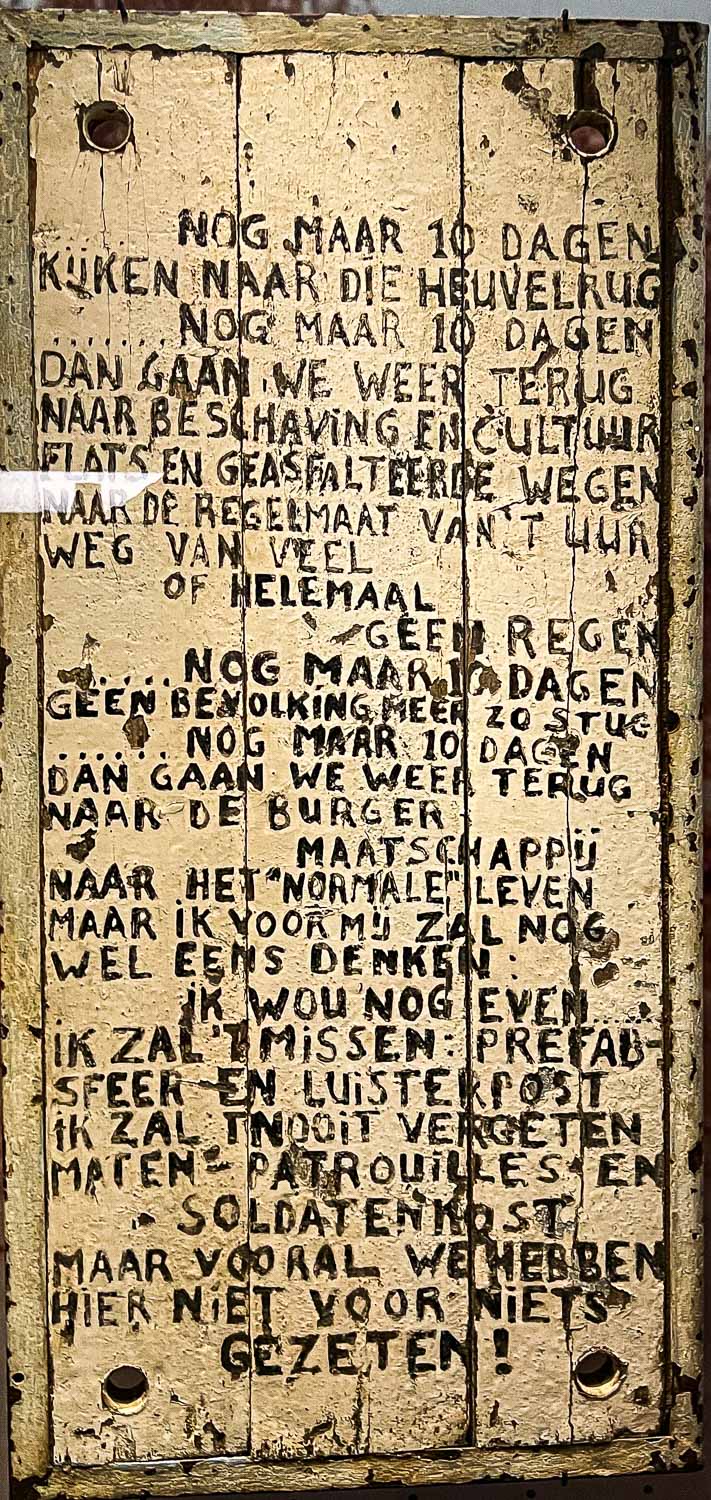 NOG MAAR 10 DAGEN
KIJKEN NAAR DIE HEUVELRUG
......NOG MAAR 10 DAGEN
DAN GAAN WE WEER TERUG
NAAR BESCHAVING EN CULTUUR
FLATS EN GEASFALTEERDE WEGEN
NAAR DE REGELMAAT VAN 'T UUR
WEG VAN VEEL
OF HELEMAAL
GEEN REGEN
.....NOG MAAR 10 DAGEN
GEEN BEVOLKING MEER ZO STUG
......NOG MAAR 10 DAGEN
DAN GAAN WE WEER TERUG
NAAR DE BURGER
MAATSCHAPPIJ
NAAR HET "NORMALE" LEVEN
MAAR IK VOOR MIJ ZAL NOG
WEL EENS DENKEN:
IK WOU NOG EVEN.....
IK ZAL 'T MISSEN: PREFAB-
SFEER EN LUISTERPOST
IK ZAL 'T NOOIT VERGETEN
MATEN - PATROUILLES EN
SOLDATENKOST
MAAR VOORAL WE HEBBEN
HIER NIET VOOR NIETS
GEZETEN!